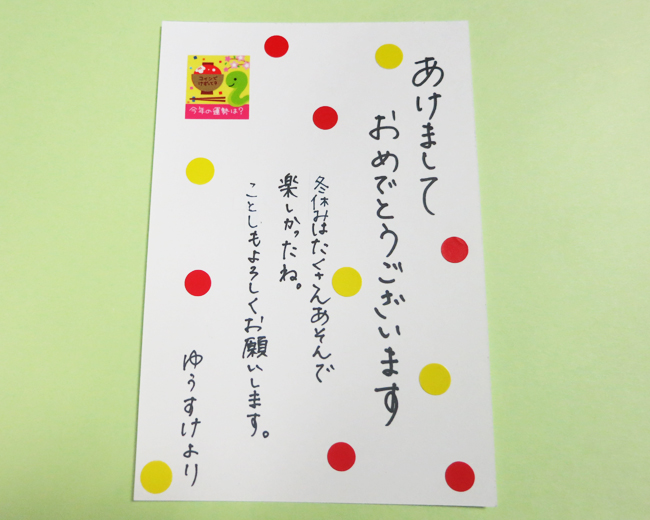 あけまして
おめでとうございます
冬休みはたくさんあそんで
楽しかったね。
ことしもよろしくお願いします。
ゆうすけより
コインで
けずってね
今年の運勢は?